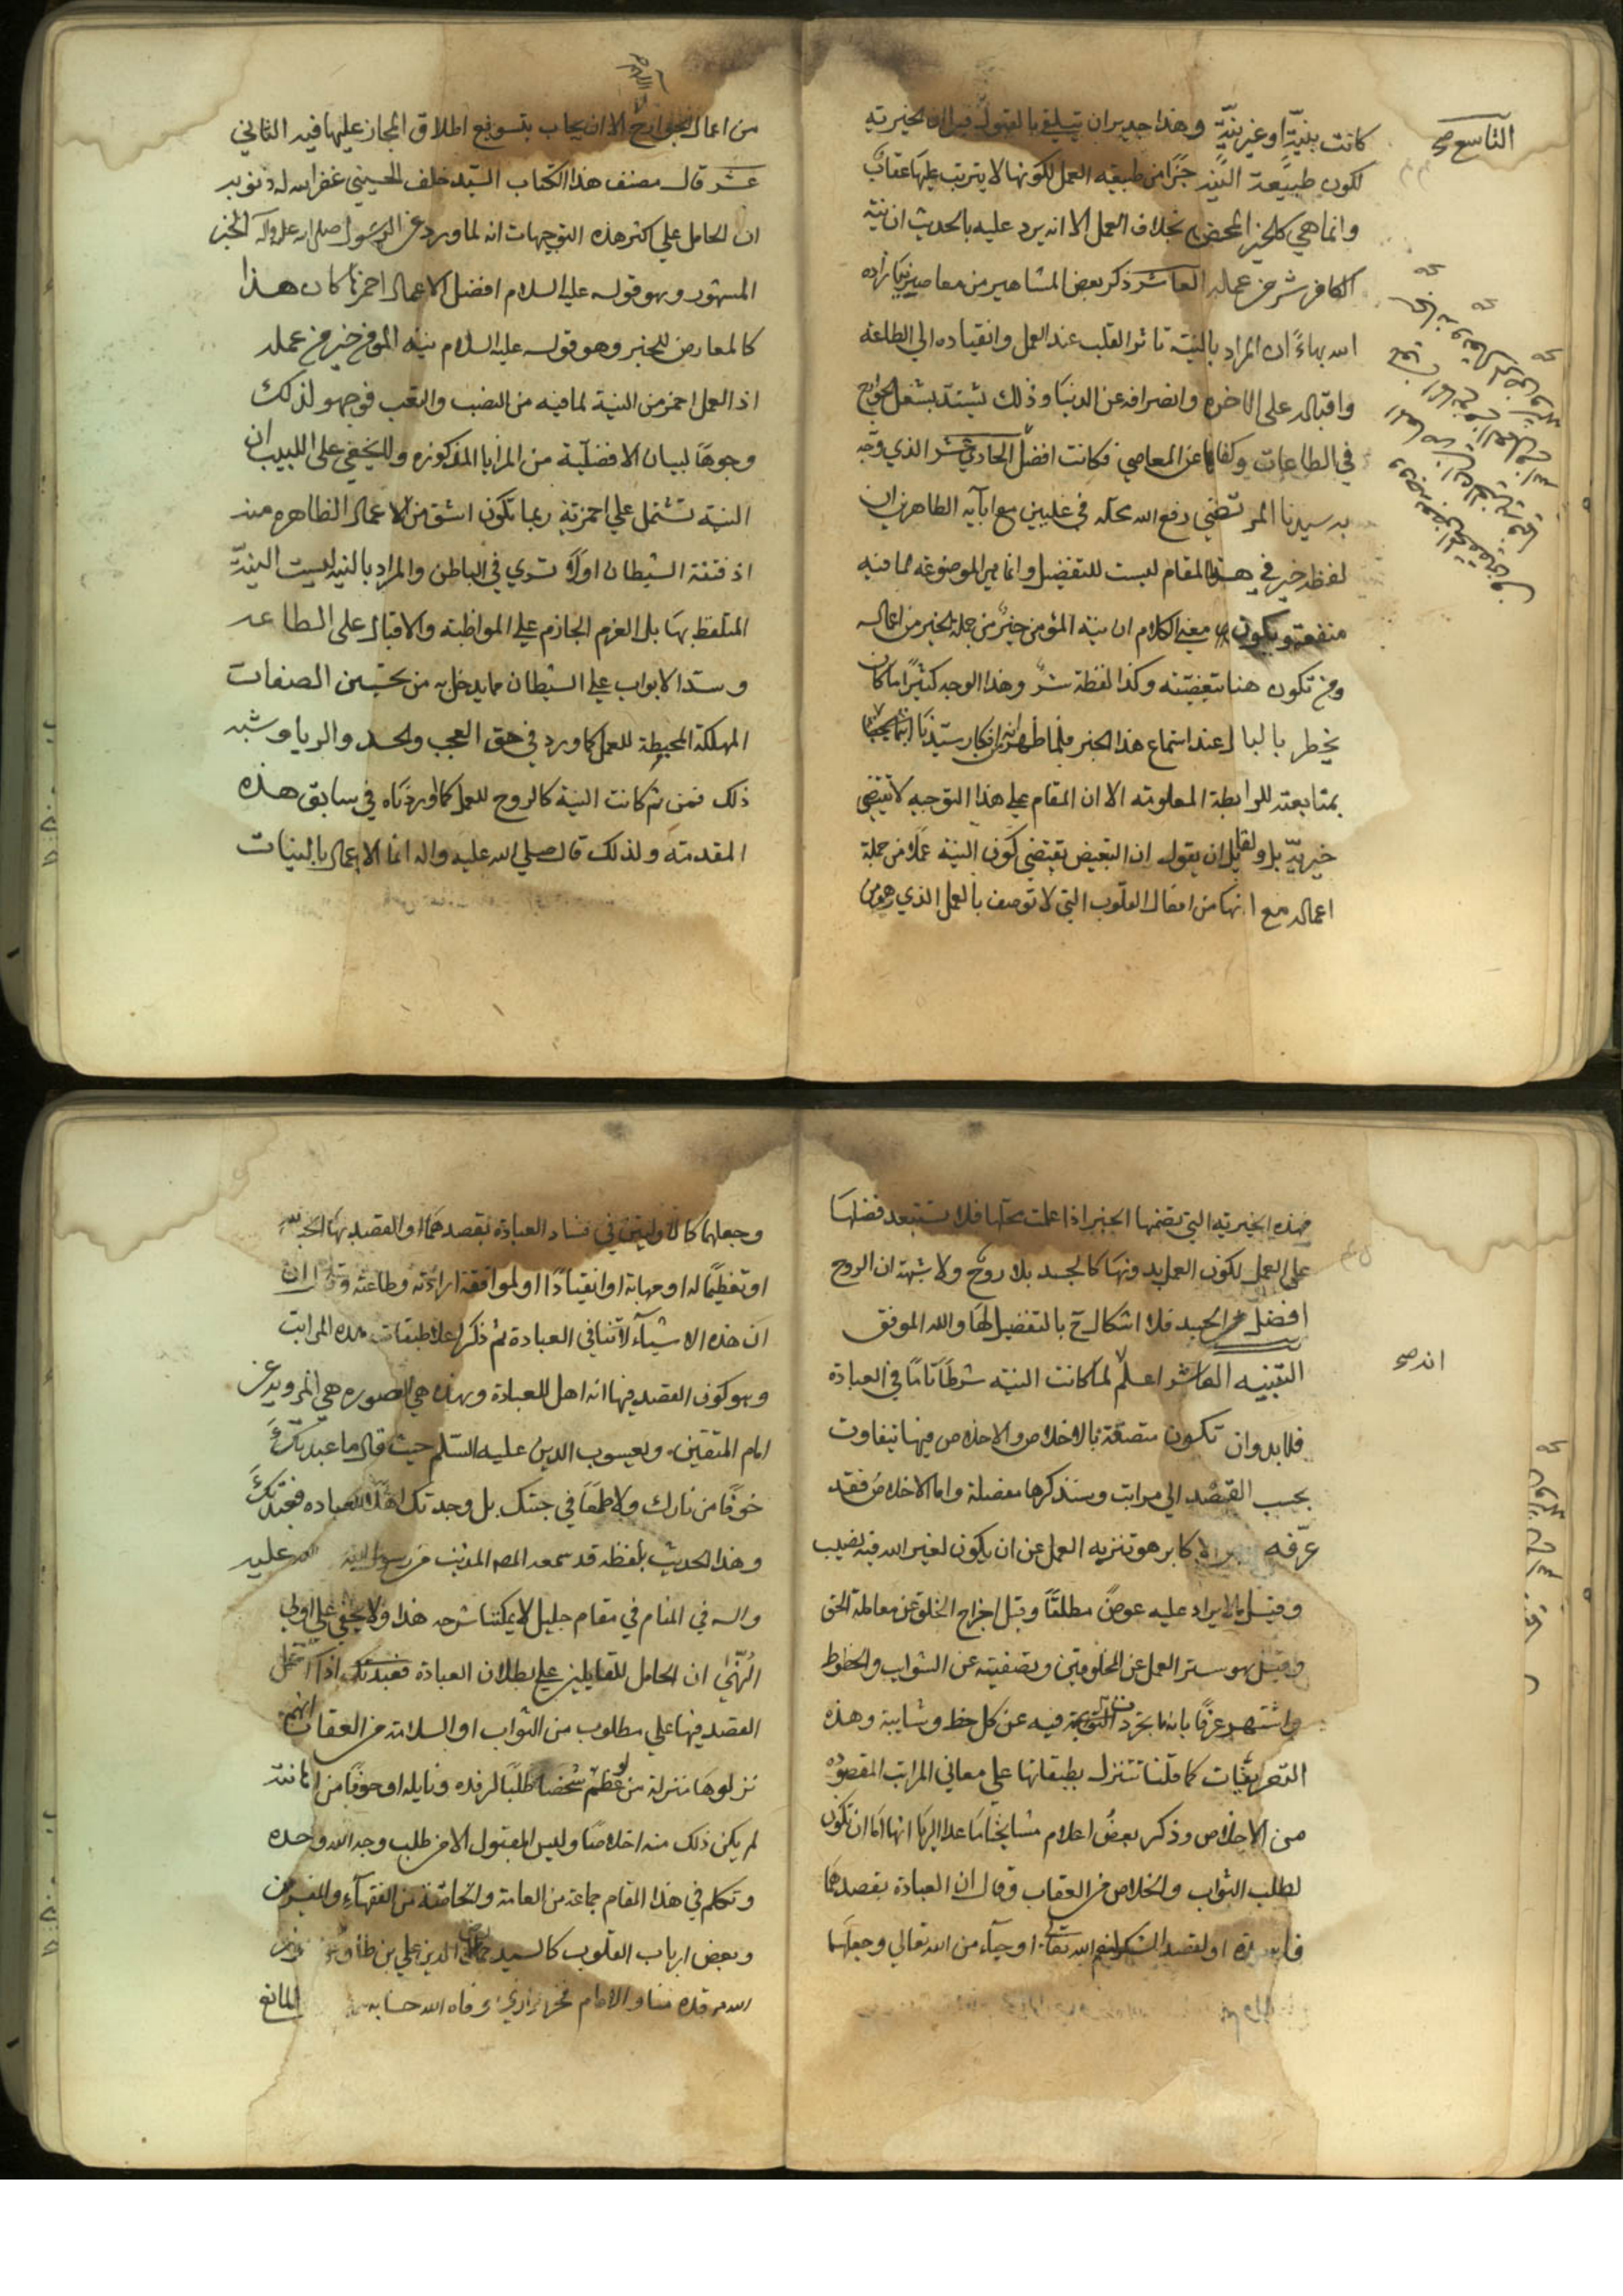 التاسع صح
كانت بنيّة او غير نيّة وهذا جدير ان يتلقى بالقبول قيل ان الخيرية
لكون طبيعة النية خيرًا من طبيعة العمل لكونها لا يترتب عليها عقاب
وانما هي كالخير المحض بخلاف العمل الا انه يرد عليه بالحديث ان نية
الكافر شر من عمله العاشر ذكر بعض المشاهير من معاصرينا زاده
الله بهاءً ان المراد بالنية تاثر القلب عند العمل وانقياده الى الطاعة
واقباله على الاخره وانصرافه عن الدنيا وذلك يشتد بشغل الجوارح
في الطاعات وكفها عن المعاصي فكانت افضل الحادي عشر الذي وجّه
به سيدنا المرتضي رفع الله محله في عليين مع ابآيه الطاهرين ان
لفظه خير في هذا المقام ليست للتفضيل وانما هي الموضوعة لما فيه
منفعة ويكون معنى الكلام ان نية المؤمن خيرٌ من جملة الخير من اعماله
ومن تكون هنا تبعيضيه وكذا لفظة شرّ وهذا الوجه كثيرًا ما كان
يخطر بالبال عند استماع هذا الخبر فلما ظهر انه من افكار سيدنا ابتهجنا
بمتابعته للرابطة المعلومة الا ان المقام على هذا التوجيه لا يقتضي
خيرية بل ولقايل ان يقول ان التبعيض يقتضي كون النية عملا من جملة
اعماله مع انها من افعال القلوب التي لا توصف بالعمل الذي هو من
من اعمال الجوارح الا ان يجاب بتسويغ اطلاق المجاز عليها فيه الثاني
عشر قال مصنف هذا الكتاب السيد خلف الحسيني غفر الله له ذنوبه
ان الحامل على اكثر هذه التوجيهات انه لما ورد عن الرسول صلى الله عليه وآله الخبر
المشهور وهو قوله عليه السلام افضل الاعمال احمزها كان هذا
كالمعارض للخبر وهو قوله عليه السلام نية المومن خير من عمله
اذ العمل احمز من النية لما فيه من النصب والتعب فوجهو لذلك
وجوهًا لبيان الافضلية من المزايا المذكوره ولا يخفى على اللبيب ان
النية تشتمل على احمزية ربما تكون اشق من الاعمال الظاهره منه
اذ فتنة الشيطان اولاً تسري في الباطن والمراد بالنية ليست النيّة
المتلفظ بها بل العزم الجازم على المواظبة والاقبال على الطاعه
وسد الابواب على الشيطان مما يدخل به من تحسين الصفات
المهلكة المحبطة للعمل كما ورد في حق العجب والحسد والريا وشبه
ذلك فمن ثم كانت النية كالروح للعمل كما اوردناه في سابق هذه
المقدمة ولذلك قال صلى الله عليه واله انما الاعمال بالنيات
فهذه الخيرية التي تضمنها الخبر اذا علمت محلها فلا تستبعد فضلها
على العمل لكون العمل بدونها كالجسد بلا روح ولا شبهة ان الروح
افضل من الجسد فلا اشكال ح بالتفضيل لها والله الموفق
التنبيه العاشر اعلم لما كانت النية شرطًا تامًا في العبادة
انه صح
فلا بد وان تكون متصفة بالاخلاص والاخلاص فيها تتفاوت
بحسب القصد الى مراتب وسنذكرها مفصلة واما الاخلاص فقد
عرّفه الاكابر هو تنزيه العمل عن ان يكون لغير الله فيه نصيب
وقيل ما لا يراد عليه عوض مطلقًا وقيل اخراج الخلق عن معاملة الحق
وقيل هو ستر العمل عن المخلوقين وتصفيته عن الشواب والحظوظ
واشتهر عرفًا بانه تجرد النية فيه عن كل حظ وشايبة وهذه
التعريفات كما قلنا تتنزل بطبقاتها على معاني المراتب المقصوده
من الاخلاص وذكر بعض اعلام مشايخنا انها اما ان تكون
لطلب الثواب والخلاص من العقاب وقال ان العبادة بقصدهما
فاسدة او لقصد الشكر لنعم الله تعالى او حيآء من الله تعالى وجعلهما
وجعلهما كالاوليين في فساد العبادة بقصدهما او القصد بها
او تعظيمًا له او مهابة او انقيادًا او لموافقة ارادته وطاعته وقال ان
ان هذه الاشيآء لا تنافي العبادة ثم ذكر اعلا طبقات هذه المراتب
وهو كون القصد فيها انه اهل للعبادة وهذه هي الصوره هي المرويه عن
امام المتقين ويعسوب الدين عليه السلم حيث قال ما عبدتك
خوفًا من نارك ولا طمعًا في جنتك بل وجدتك اهلًا للعباده فعبدتك
وهذا الحديث بلفظه قد سمعه المص المذنب من رسول الله عليه
واله في المنام في مقام جليل لا يمكننا شرحه هذا ولا يخفى على اولي
النّهى ان الحامل للقايلين على بطلان العبادة
القصد فيها على مطلوب من الثواب او السلامة من العقاب انهم
نزلوها منزلة من عظم شخصا طلبًا لرفده ونايله او خوفًا من اهانته
لم يكن ذلك منه اخلاصًا وليس المقبول الا من طلب وجه الله وحده
وتكلم في هذا المقام جماعة من العامة والخاصة من الفقهآء والمفسرين
وبعض ارباب القلوب كالسيد جمال الدين علي بن طاووس نور
الله مرقده منا والامام فخر رازي وفاه الله حسابه المانع